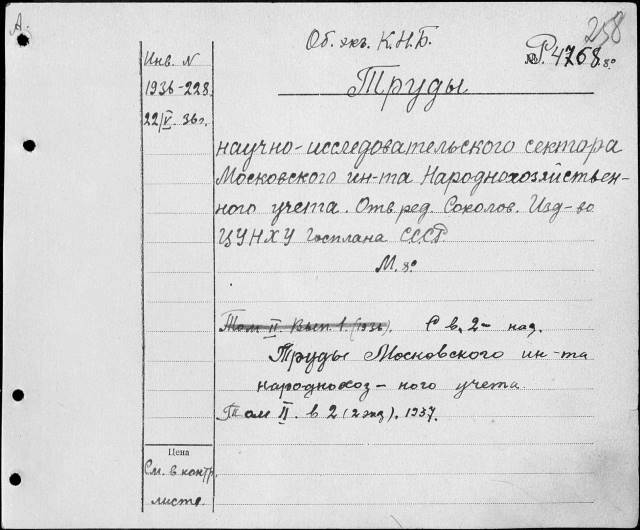 А.
258
Об. экз. К.Н.Б.
№Р. 4768. 8°
Инв. N
1936-228.
22/V. 36г.
Труды
научно-исследовательского сектора
Московского ин-та Народнохозяйствен-
ного учета. Отв. ред. Соколов. Изд-во
ЦУНХУ Госплана СССР.
М. 8°
Том II. Вып. 1. (1936). С в. 2- наз.
Труды Московского ин-та
народнохоз-ного учета.
Том II. в 2 (2 экз). 1937.
Цена
См. в контр.
листе.